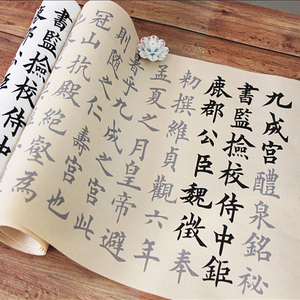 九成宮醴泉銘祕
書監撿校侍中鉅
鹿郡公臣魏徵奉
勅撰維貞觀六年
孟夏之月皇帝避
暑乎九成之宮此
則隨之仁壽宮也
冠山抗殿絕壑為
書監撿校侍中
鹿郡公